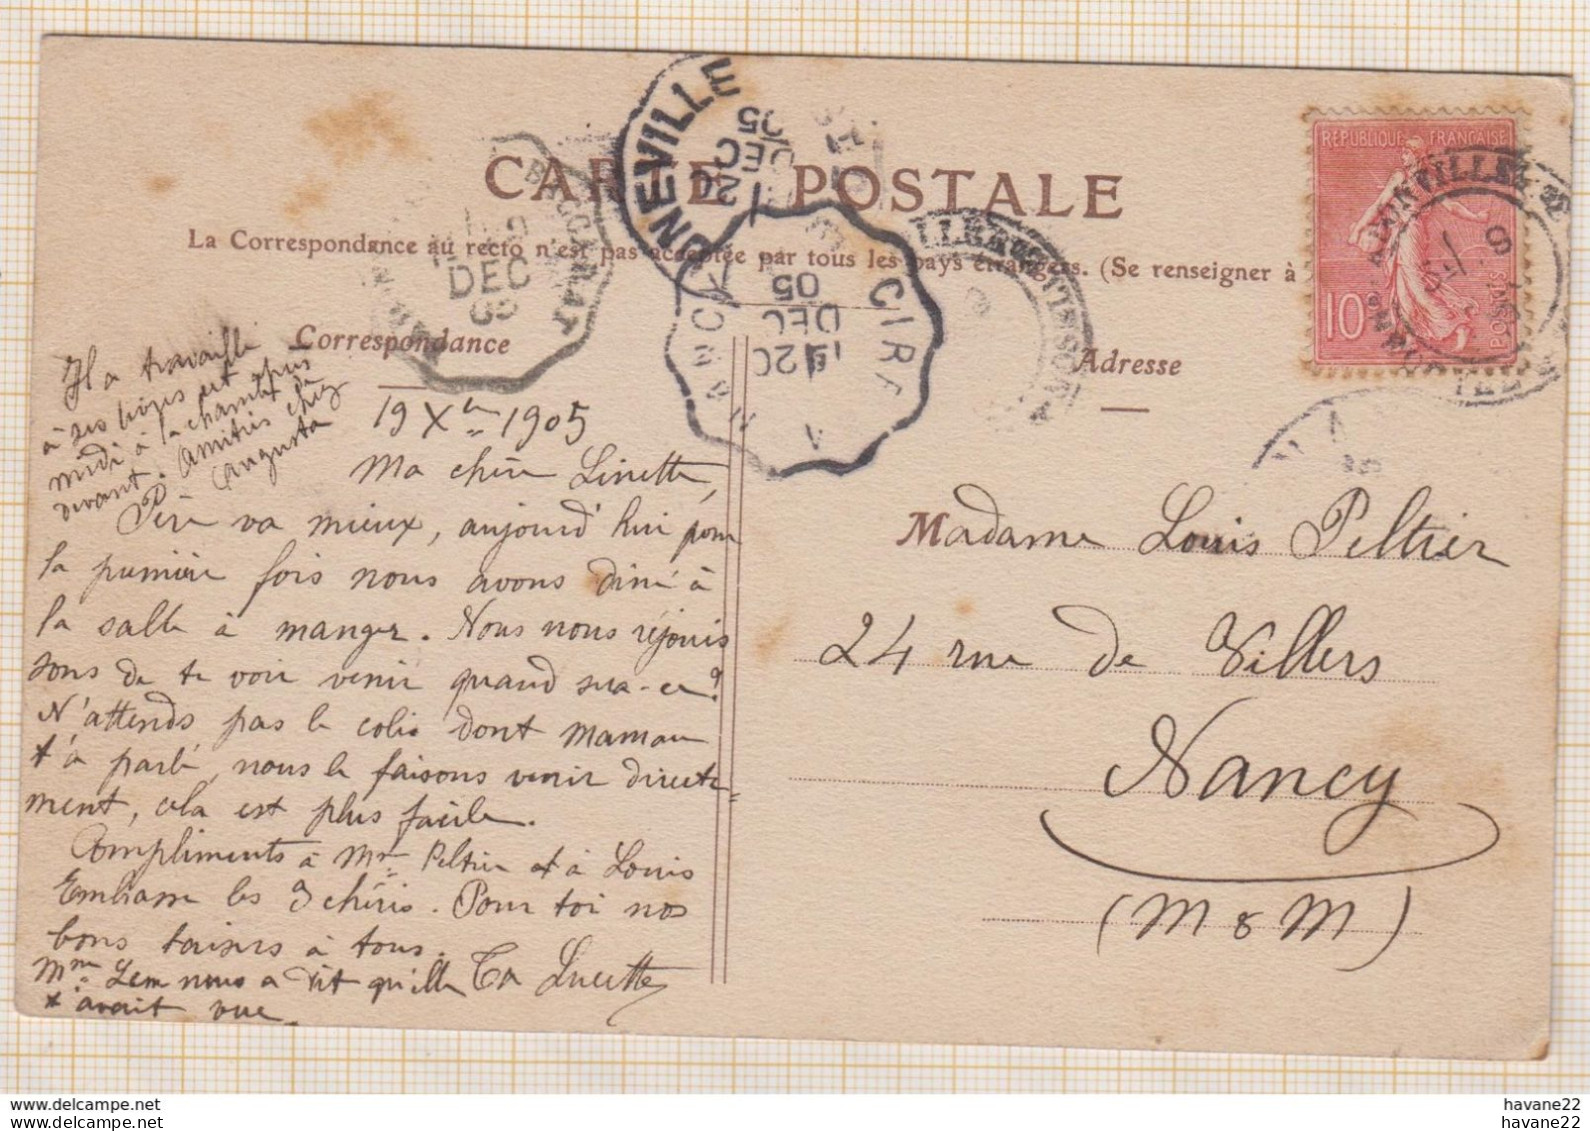 CARTE POSTALE
La Correspondance au recto n'est pas acceptée par tous les pays étrangers. (Se renseigner à
Correspondance
Adresse
REPUBLIQUE FRANÇAISE
10
POSTES
ONEVILLE
DEC
05
BACCARAT
DEC
05
CIRE
DEC
05
Il a travaillé
à ses livres et depuis
midi à la chambre de
devant. Amitiés chez
Augusta
19 Xbre 1905
Ma chère Linette,
Père va mieux, aujourd'hui pour
la première fois nous avons diné à
la salle à manger. Nous nous réjouis
sons de te voir venir quand sera-ce?
N'attends pas le colis dont Maman
t'a parlé, nous le faisons venir directe=
ment, cela est plus facile.
Compliments à Mme Peltier et à Louis
Embrasse les 3 chéris. Pour toi nos
bons baisers à tous.
Ta Lucette
Mme Lem nous a dit qu'elle
t'avait vue.
Madame Louis Peltier
24 rue de Villers
Nancy
(M & M)
havane22
havane22